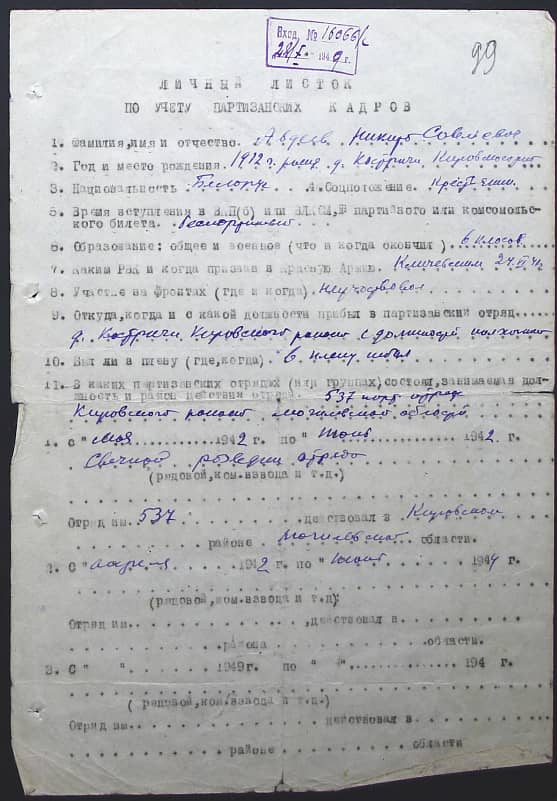 Вход. №16066/с
28/I 1949 г.
99
ЛИЧНЫЙ ЛИСТОК
ПО УЧЕТУ ПАРТИЗАНСКИХ КАДРОВ
1. Фамилия, имя и отчество. Авдеев Никита
2. Год и место рождения. 1912 г. д. Костричи Кировского
3. Национальность Белорус. 4. Соцположение. Крестьянин.
5. Время вступления в ВКП(б) или ВЛКСМ, № партийного или комсомольс-
кого билета. Беспартийный
6. Образование: общее и военное (что и когда окончил). 6 классов
7. Каким РВК и когда призван в Красную Армию. Кличевским
8. Участие на фронтах (где и когда). не участвовал
9. Откуда, когда и с какой должности прибыл в партизанский отряд.
д. Костричи Кировского района с должности
10. Был ли в плену (где, когда). в плену не был
11. В каких партизанских отрядах (или группах) состоял, занимаемая дол-
жность и район действия отряда. 537 парт. отряд
Кировского района Могилевской области
1. С " мая 1942 г. по " 1942 г.
отряда
(рядовой, ком. взвода и т.д.)
Отряд им. 537 действовал в Кировском
районе Могилевской области.
2. С " апреля 1942 г. по " 1944 г.
(рядовой, ком. взвода и т.д)
Отряд им. , действовал в
района области.
3. С " " 1949г. по " " 194 г.
(рядовой, ком. взвода и т.д.)
Отряд им. действовал в
районе области